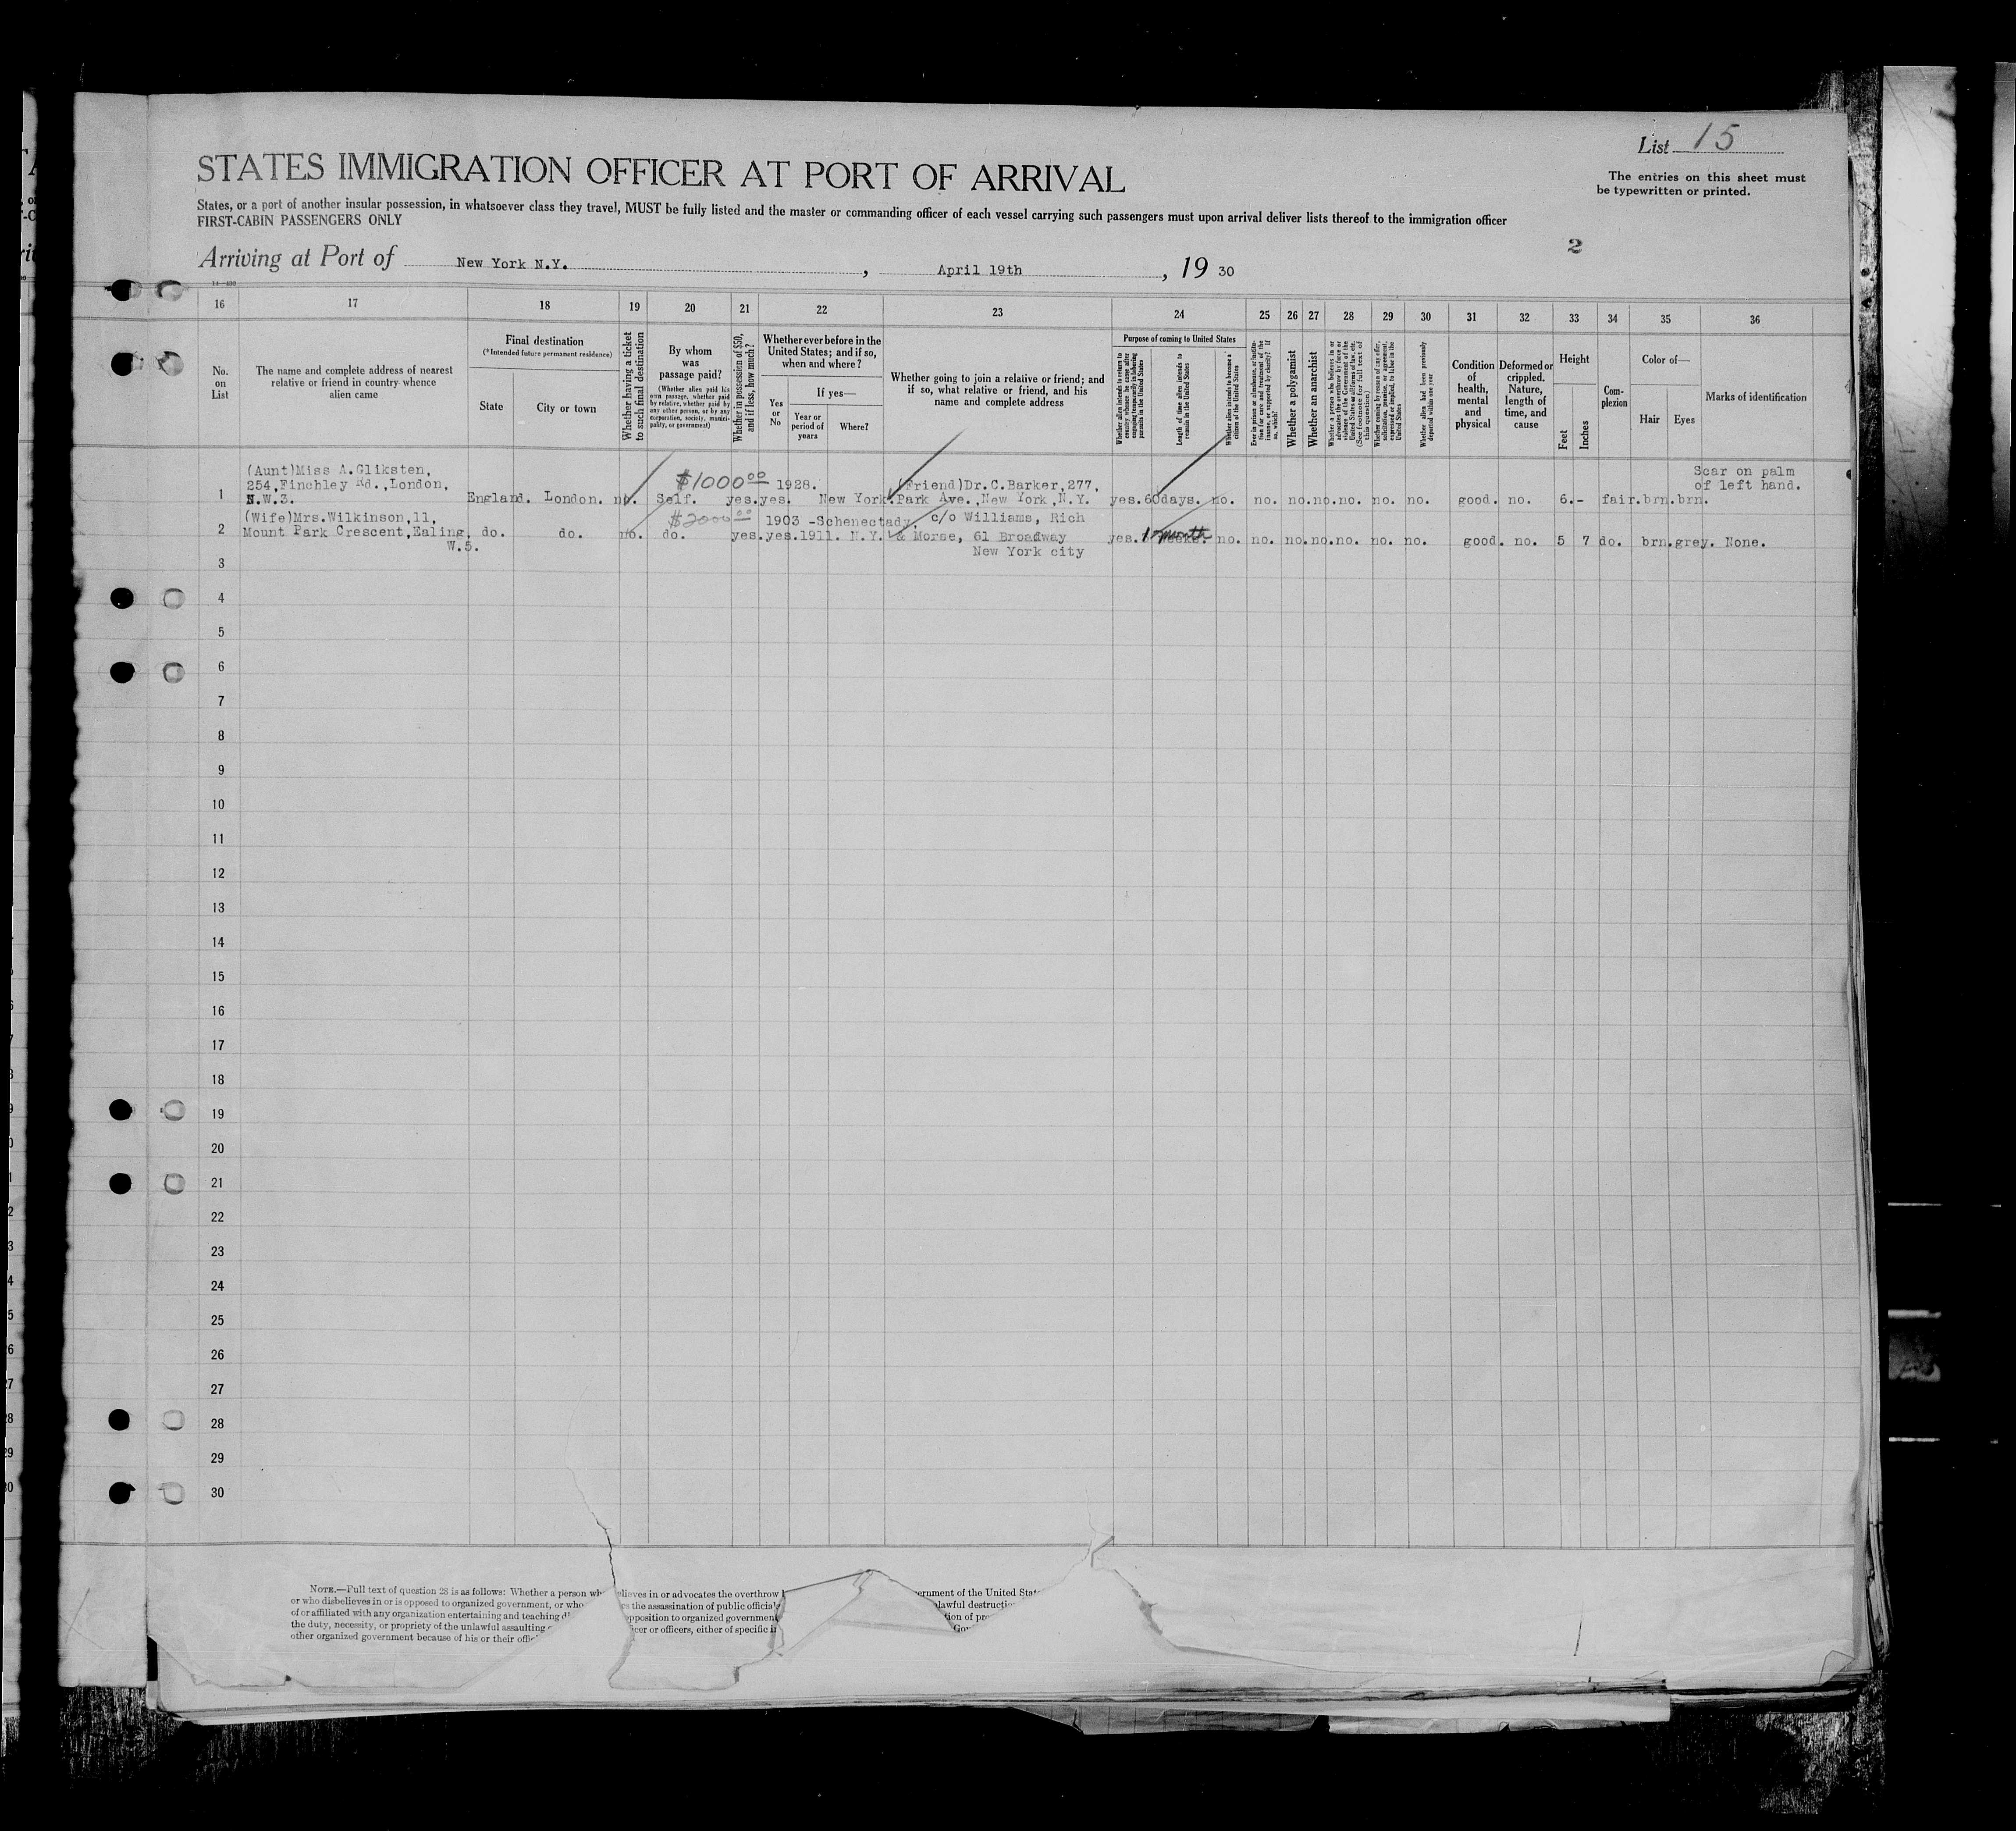 List 15
The entries on this sheet must
be typewritten or printed.
STATES IMMIGRATION OFFICER AT PORT OF ARRIVAL
States, or a port of another insular possession, in whatsoever class they travel, MUST be fully listed and the master or commanding officer of each vessel carrying such passengers must upon arrival deliver lists thereof to the immigration officer
FIRST-CABIN PASSENGERS ONLY
2
Arriving at Port of New York N.Y., April 19th, 19 30
16 17 18 19 20 21 22 23 24 25 26 27 28 29 30 31 32 33 34 35 36
No.
on
List
The name and complete address of nearest
relative or friend in country whence
alien came
Final destination
(*Intended future permanent residence)
State
City or town
Whether having a ticket
to such final destination
By whom
was
passage paid?
(Whether alien paid his
own passage, whether paid
by relative, whether paid by
any other person, or by any
corporation, society, munici-
pality, or government)
Whether in possession of $50,
and if less, how much?
Whether ever before in the
United States; and if so,
when and where?
Yes
or
No
If yes—
Year or
period of
years
Where?
Whether going to join a relative or friend; and
if so, what relative or friend, and his
name and complete address
Purpose of coming to United States
Whether alien intends to return to
country whence he came after
engaging temporarily in laboring
pursuits in the United States
Length of time alien intends to
remain in the United States
Whether alien intends to become a
citizen of the United States
Ever in prison or almshouse, or institu-
tion for care and treatment of the
insane, or supported by charity? If
so, which?
Whether a polygamist
Whether an anarchist
Whether a person who believes in or
advocates the overthrow by force or
violence of the Government of the
United States or all forms of law, etc.
(See footnote for full text of
this question)
Whether coming by reason of any offer,
solicitation, promise, or agreement,
expressed or implied, to labor in the
United States
Whether alien had been previously
deported within one year
Condition
of
health,
mental
and
physical
Deformed or
crippled.
Nature,
length of
time, and
cause
Height
Feet
Inches
Com-
plexion
Color of—
Hair
Eyes
Marks of identification
(Aunt)Miss A.Gliksten, Scar on palm
254,Finchley Rd.,London, $1000 00 1928. (Friend)Dr.C.Barker,277, of left hand.
1 N.W.3. England. London. no. Self. yes. yes. New York. Park Ave.,New York,N.Y. yes. 60days. no. no. no. no. no. no. no. good. no. 6.- fair. brn. brn.
(Wife)Mrs.Wilkinson,11, $2000 00 1903 -Schenectady, c/o Williams, Rich
2 Mount Park Crescent,Ealing, do. do. no. do. yes. yes. 1911. N.Y. & Morse, 61 Broadway yes. 1 month no. no. no. no. no. no. no. good. no. 5 7 do. brn. grey. None.
W.5. New York city
3
4
5
6
7
8
9
10
11
12
13
14
15
16
17
18
19
20
21
22
23
24
25
26
27
28
29
30
NOTE.—Full text of question 28 is as follows: Whether a person who believes in or advocates the overthrow ernment of the United Stat
or who disbelieves in or is opposed to organized government, or who the assassination of public official lawful destruction
of or affiliated with any organization entertaining and teaching opposition to organized government tion of pro
the duty, necessity, or propriety of the unlawful assaulting icer or officers, either of specific i Gov
other organized government because of his or their offic